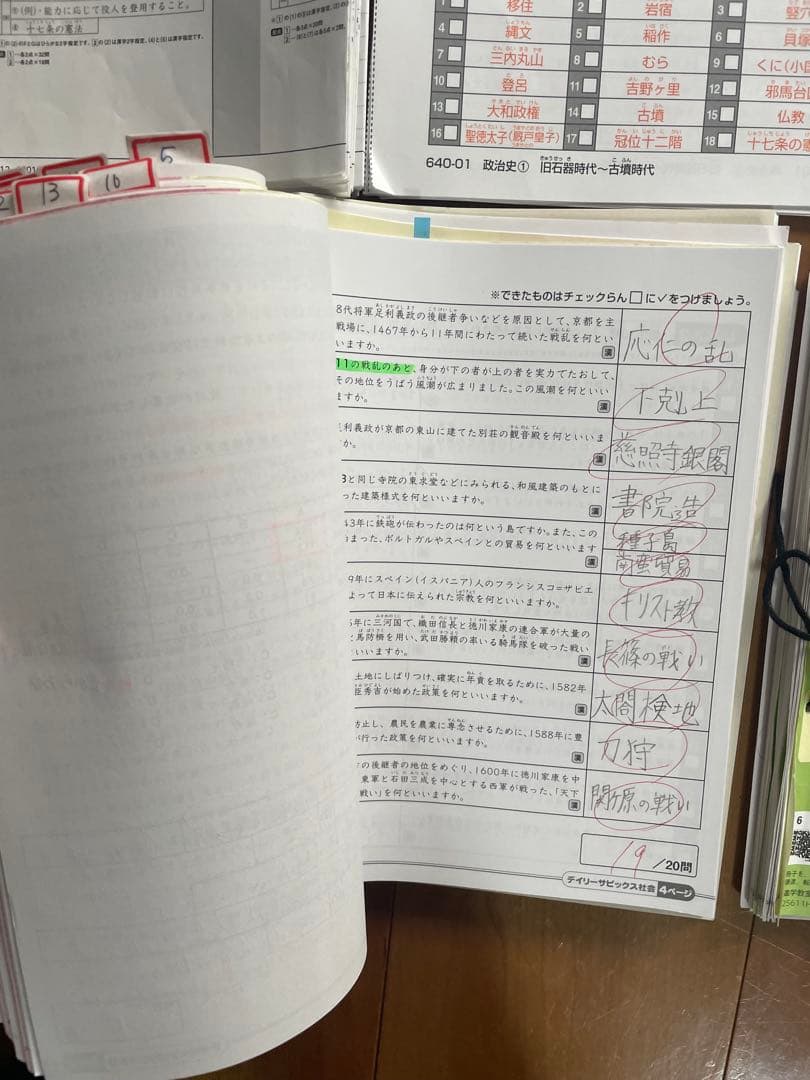 (例)・能力に応じて役人を登用すること。
十七条の憲法
移住
2
岩宿
3
4
縄文
5
稲作
6
貝塚
7
三内丸山
8
むら
9
くに(小国
10
登呂
11
吉野ヶ里
12
邪馬台国
13
大和政権
14
古墳
15
仏教
16
聖徳太子(厩戸皇子)
17
冠位十二階
18
十七条の憲
640-01 政治史① 旧石器時代〜古墳時代
13
10
5
※できたものはチェックらん□に✓をつけましょう。
8代将軍足利義政の後継者争いなどを原因として、京都を主
戦場に、1467年から11年間にわたって続いた戦乱を何とい
いますか。
応仁の乱
11の戦乱のあと、身分が下の者が上の者を実力でたおして、
その地位をうばう風潮が広まりました。この風潮を何といい
ますか。
下剋上
利義政が京都の東山に建てた別荘の観音殿を何といいま
か。
慈照寺銀閣
3と同じ寺院の東求堂などにみられる、和風建築のもとに
った建築様式を何といいますか。
書院造
43年に鉄砲が伝わったのは何という島ですか。また、この
まった、ポルトガルやスペインとの貿易を何といいます
種子島
南蛮貿易
9年にスペイン(イスパニア)人のフランシスコ=ザビエ
よって日本に伝えられた宗教を何といいますか。
キリスト教
5年に三河国で、織田信長と徳川家康の連合軍が大量の
馬防柵を用い、武田勝頼の率いる騎馬隊を破った戦い
いいますか。
長篠の戦い
土地にしばりつけ、確実に年貢を取るために、1582年
臣秀吉が始めた政策を何といいますか。
太閤検地
防止し、農民を農業に専念させるために、1588年に豊
が行った政策を何といいますか。
刀狩
の後継者の地位をめぐり、1600年に徳川家康を中
東軍と石田三成を中心とする西軍が戦った、「天下
戦い」を何といいますか。
関ヶ原の戦い
19/20問
デイリーサピックス社会 4ページ
6